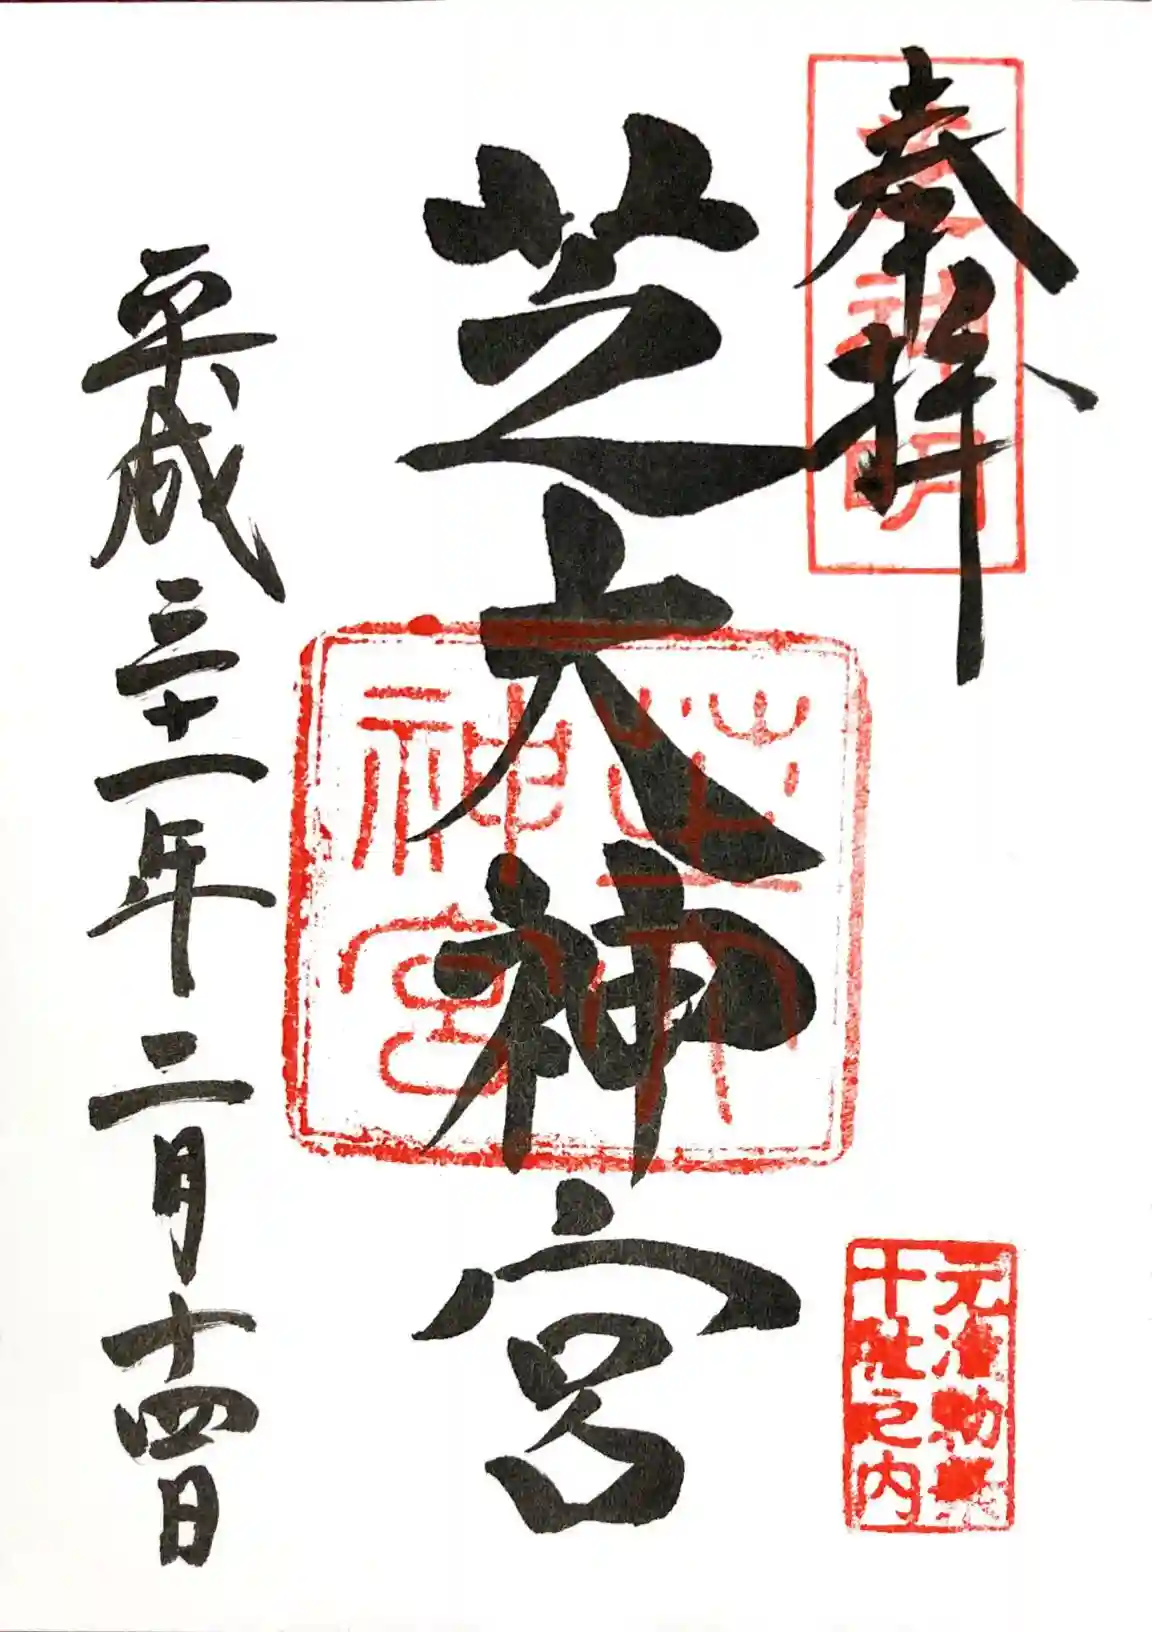 奉拝
芝神明
芝大神宮
芝大
神宮
元准勅祭
十社之内
平成三十一年二月十四日